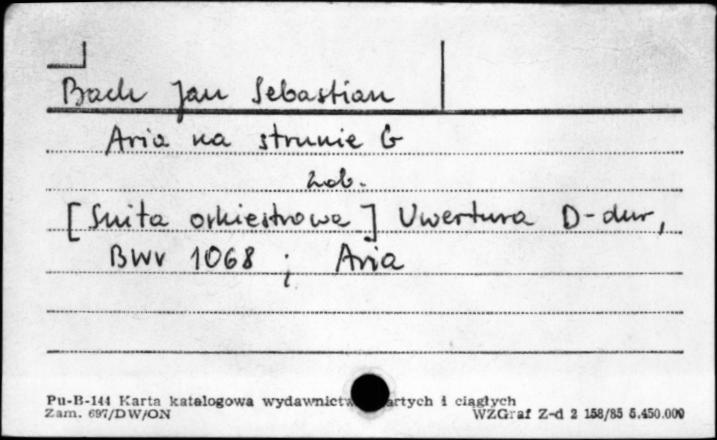 Bach Jan Sebastian
Aria na strunie G
zob.
[Suita orkiestrowa] Uwertura D-dur,
BWV 1068 ; Aria
Pu-B-144 Karta katalogowa wydawnictw artych i ciągłych
Zam. 697/DW/ON WZGraf Z-d 2 158/85 5.450.000